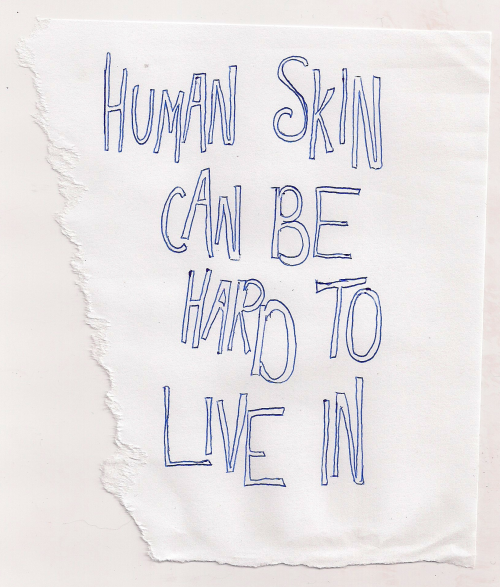 HUMAN SKIN
CAN BE
HARD TO
LIVE IN